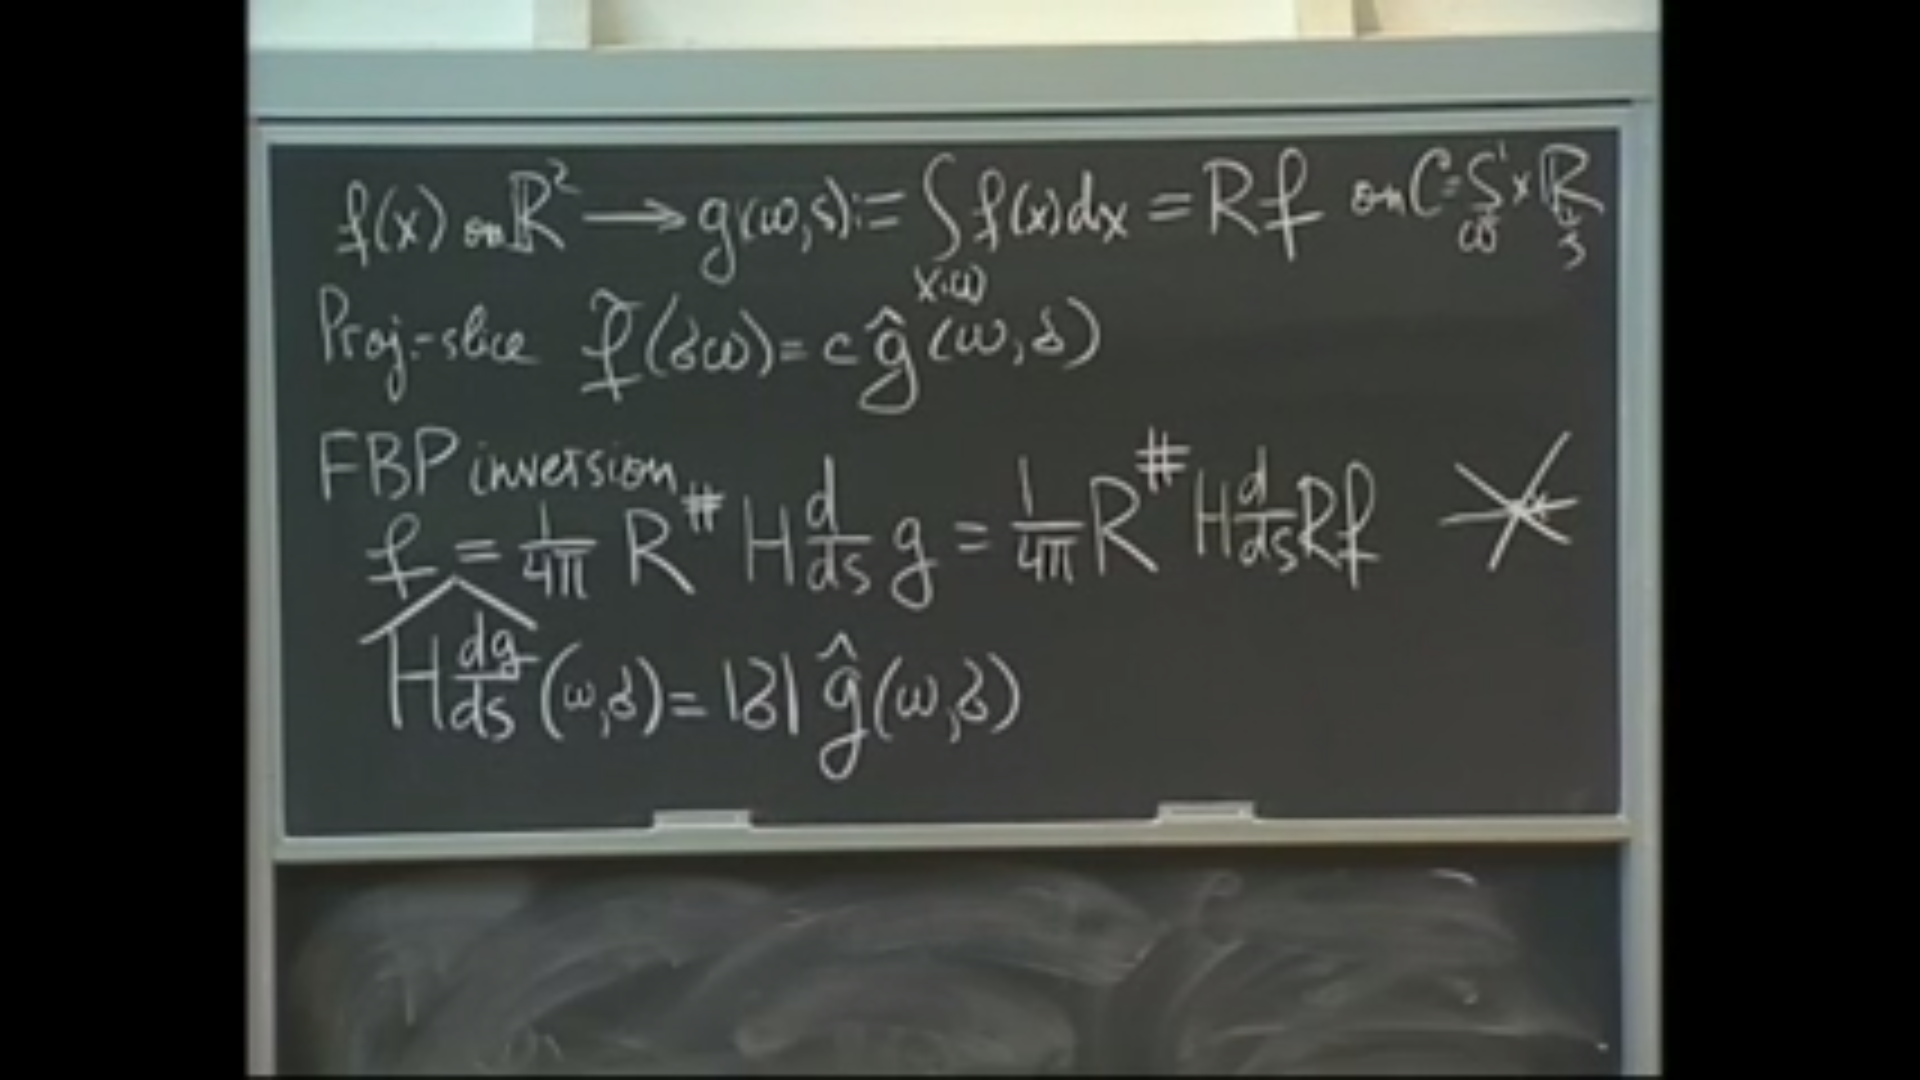 f(x) on ℝ² → g(ω,s) := ∫_{x·ω} f(x)dx = Rf on C = S¹_ω × ℝ_s
Proj.-slice f̃(σω) = c ĝ(ω,σ)
FBP inversion
f = 1/4π R^# H d/ds g = 1/4π R^# H d/ds Rf *
\widehat{H dg/ds}(ω,σ) = |σ| ĝ(ω,σ)